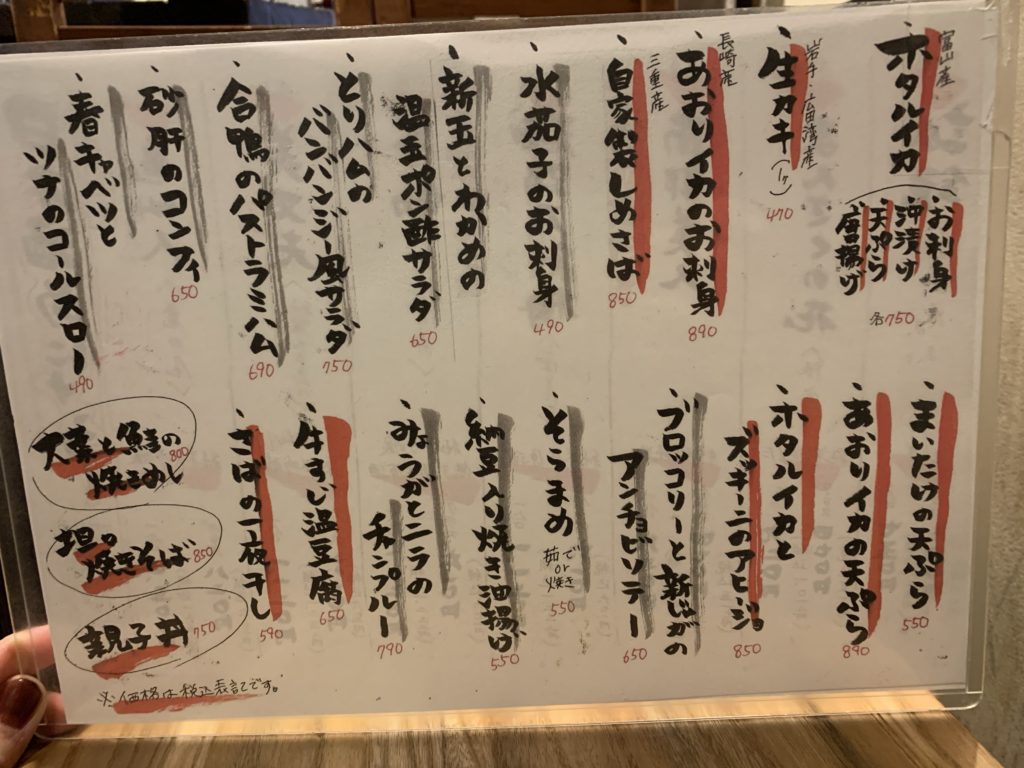 富山産
ホタルイカ
お刺身
沖漬け
天ぷら
唐揚げ
各750
岩手・広田湾産
生カキ(1ケ)
470
長崎産
あおりイカのお刺身
890
三重産
自家製しめさば
850
水茄子のお刺身
490
新玉とわかめの
温玉ポン酢サラダ
650
とりハムの
バンバンジー風サラダ
750
合鴨のパストラミハム
690
砂肝のコンフィ
650
春キャベツと
ツナのコールスロー
490
まいたけの天ぷら
550
あおりイカの天ぷら
890
ホタルイカと
ズッキーニのアヒージョ
850
ブロッコリーと新じゃがの
アンチョビソテー
650
そらまめ 茹でor焼き
550
納豆入り焼き油揚げ
550
みょうがとニラの
チャンプルー
790
牛すじ温豆腐
650
さばの一夜干し
590
大葉と鮭の
焼きめし
800
塩
焼きそば
850
親子丼
750
※価格は税込表記です。